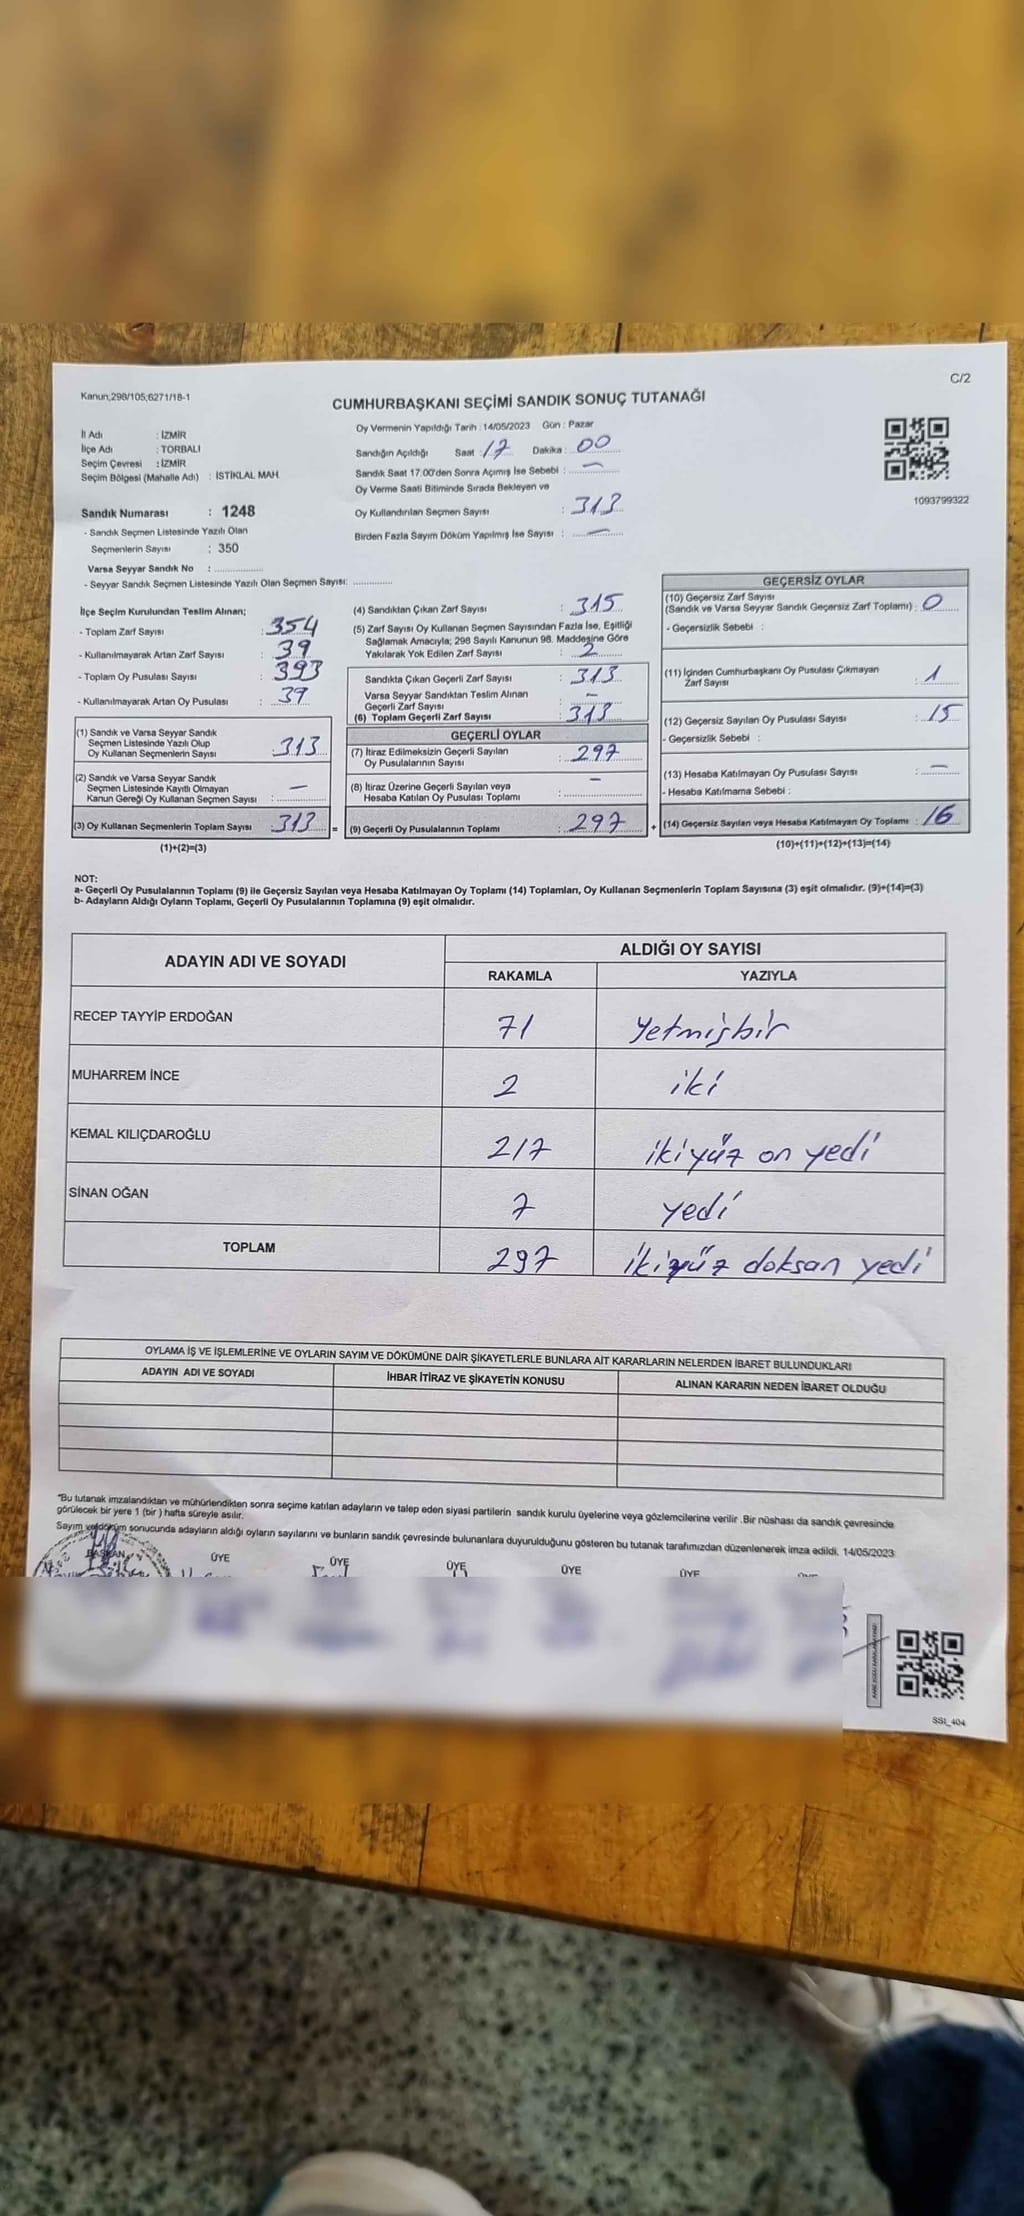 C/2
Kanun;298/105;6271/18-1
CUMHURBAŞKANI SEÇİMİ SANDIK SONUÇ TUTANAĞI
İl Adı : İZMİR
İlçe Adı : TORBALI
Seçim Çevresi : İZMİR
Seçim Bölgesi (Mahalle Adı) : İSTİKLAL MAH.
Sandık Numarası : 1248
- Sandık Seçmen Listesinde Yazılı Olan
Seçmenlerin Sayısı : 350
Varsa Seyyar Sandık No : ................
- Seyyar Sandık Seçmen Listesinde Yazılı Olan Seçmen Sayısı: ............
Oy Vermenin Yapıldığı Tarih : 14/05/2023 Gün : Pazar
Sandığın Açıldığı Saat : 17 Dakika : 00
Sandık Saat 17.00'den Sonra Açımış İse Sebebi : —
Oy Verme Saati Bitiminde Sırada Bekleyen ve
Oy Kullandırılan Seçmen Sayısı : 313
Birden Fazla Sayım Döküm Yapılmış İse Sayısı : —
1093799322
İlçe Seçim Kurulundan Teslim Alınan;
- Toplam Zarf Sayısı : 354
- Kullanılmayarak Artan Zarf Sayısı : 39
- Toplam Oy Pusulası Sayısı : 393
- Kullanılmayarak Artan Oy Pusulası : 39
(1) Sandık ve Varsa Seyyar Sandık
Seçmen Listesinde Yazılı Olup
Oy Kullanan Seçmenlerin Sayısı : 313
(2) Sandık ve Varsa Seyyar Sandık
Seçmen Listesinde Kayıtlı Olmayan
Kanun Gereği Oy Kullanan Seçmen Sayısı : —
(3) Oy Kullanan Seçmenlerin Toplam Sayısı : 313 =
(1)+(2)=(3)
(4) Sandıktan Çıkan Zarf Sayısı : 315
(5) Zarf Sayısı Oy Kullanan Seçmen Sayısından Fazla İse, Eşitliği
Sağlamak Amacıyla; 298 Sayılı Kanunun 98. Maddesine Göre
Yakılarak Yok Edilen Zarf Sayısı : 2
Sandıkta Çıkan Geçerli Zarf Sayısı : 313
Varsa Seyyar Sandıktan Teslim Alınan
Geçerli Zarf Sayısı : —
(6) Toplam Geçerli Zarf Sayısı : 313
GEÇERLİ OYLAR
(7) İtiraz Edilmeksizin Geçerli Sayılan
Oy Pusulalarının Sayısı : 297
(8) İtiraz Üzerine Geçerli Sayılan veya
Hesaba Katılan Oy Pusulası Toplamı : —
(9) Geçerli Oy Pusulalarının Toplamı : 297 +
GEÇERSİZ OYLAR
(10) Geçersiz Zarf Sayısı
(Sandık ve Varsa Seyyar Sandık Geçersiz Zarf Toplamı) : 0
- Geçersizlik Sebebi :
(11) İçinden Cumhurbaşkanı Oy Pusulası Çıkmayan
Zarf Sayısı : 1
(12) Geçersiz Sayılan Oy Pusulası Sayısı : 15
- Geçersizlik Sebebi :
(13) Hesaba Katılmayan Oy Pusulası Sayısı : —
- Hesaba Katılmama Sebebi :
(14) Geçersiz Sayılan veya Hesaba Katılmayan Oy Toplamı : 16
(10)+(11)+(12)+(13)=(14)
NOT:
a- Geçerli Oy Pusulalarının Toplamı (9) ile Geçersiz Sayılan veya Hesaba Katılmayan Oy Toplamı (14) Toplamları, Oy Kullanan Seçmenlerin Toplam Sayısına (3) eşit olmalıdır. (9)+(14)=(3)
b- Adayların Aldığı Oyların Toplamı, Geçerli Oy Pusulalarının Toplamına (9) eşit olmalıdır.
ADAYIN ADI VE SOYADI ALDIĞI OY SAYISI
RAKAMLA YAZIYLA
RECEP TAYYİP ERDOĞAN 71 yetmişbir
MUHARREM İNCE 2 iki
KEMAL KILIÇDAROĞLU 217 ikiyüz on yedi
SİNAN OĞAN 7 yedi
TOPLAM 297 ikiyüz doksan yedi
OYLAMA İŞ VE İŞLEMLERİNE VE OYLARIN SAYIM VE DÖKÜMÜNE DAİR ŞİKAYETLERLE BUNLARA AİT KARARLARIN NELERDEN İBARET BULUNDUKLARI
ADAYIN ADI VE SOYADI İHBAR İTİRAZ VE ŞİKAYETİN KONUSU ALINAN KARARIN NEDEN İBARET OLDUĞU
"Bu tutanak imzalandıktan ve mühürlendikten sonra seçime katılan adayların ve talep eden siyasi partilerin sandık kurulu üyelerine veya gözlemcilerine verilir .Bir nüshası da sandık çevresinde
görülecek bir yere 1 (bir ) hafta süreyle asılır.
Sayım ve döküm sonucunda adayların aldığı oyların sayılarını ve bunların sandık çevresinde bulunanlara duyurulduğunu gösteren bu tutanak tarafımızdan düzenlenerek imza edildi. 14/05/2023
BAŞKAN ÜYE ÜYE ÜYE ÜYE ÜYE
SSI_404